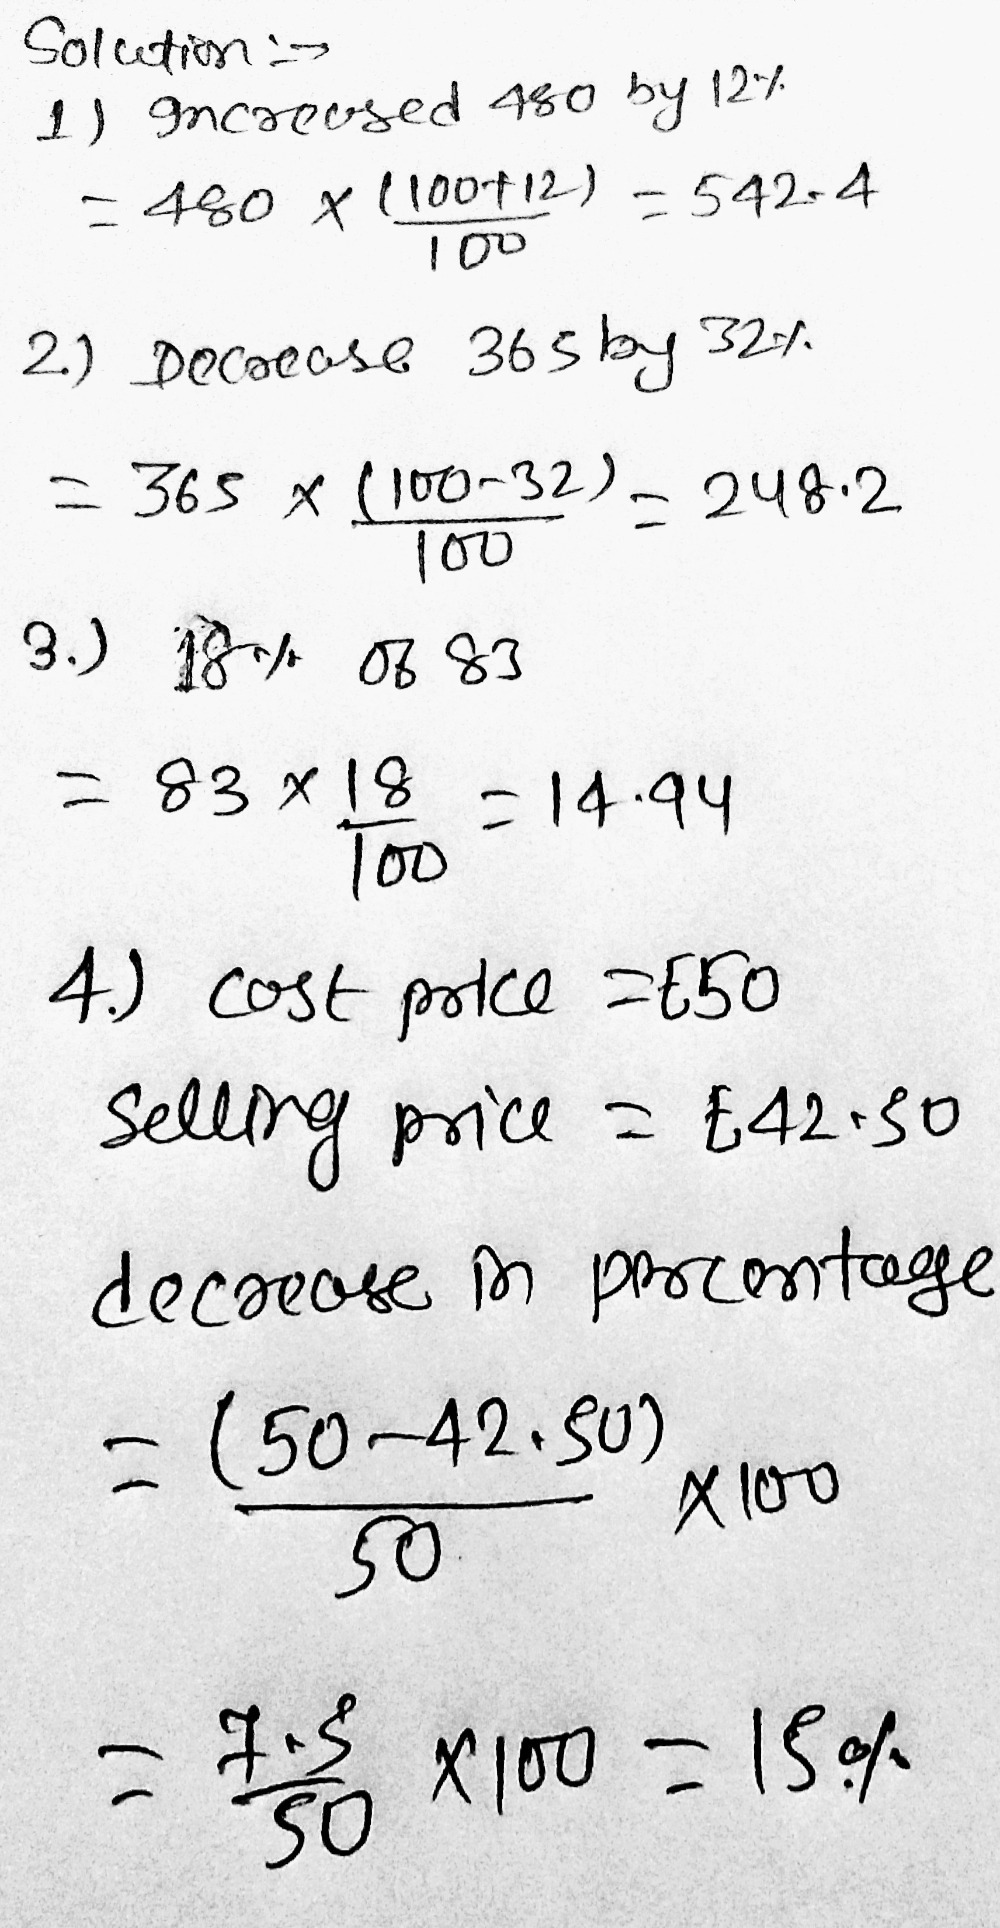 Solution :->
1) Increased 480 by 12%
= 480 x (100+12)/100 = 542.4
2.) Decrease 365 by 32%
= 365 x (100-32)/100 = 248.2
3.) 18% of 83
= 83 x 18/100 = 14.94
4.) cost price = £50
selling price = £42.50
decrease in percentage
= (50-42.50)/50 x 100
= 7.5/50 x 100 = 15%